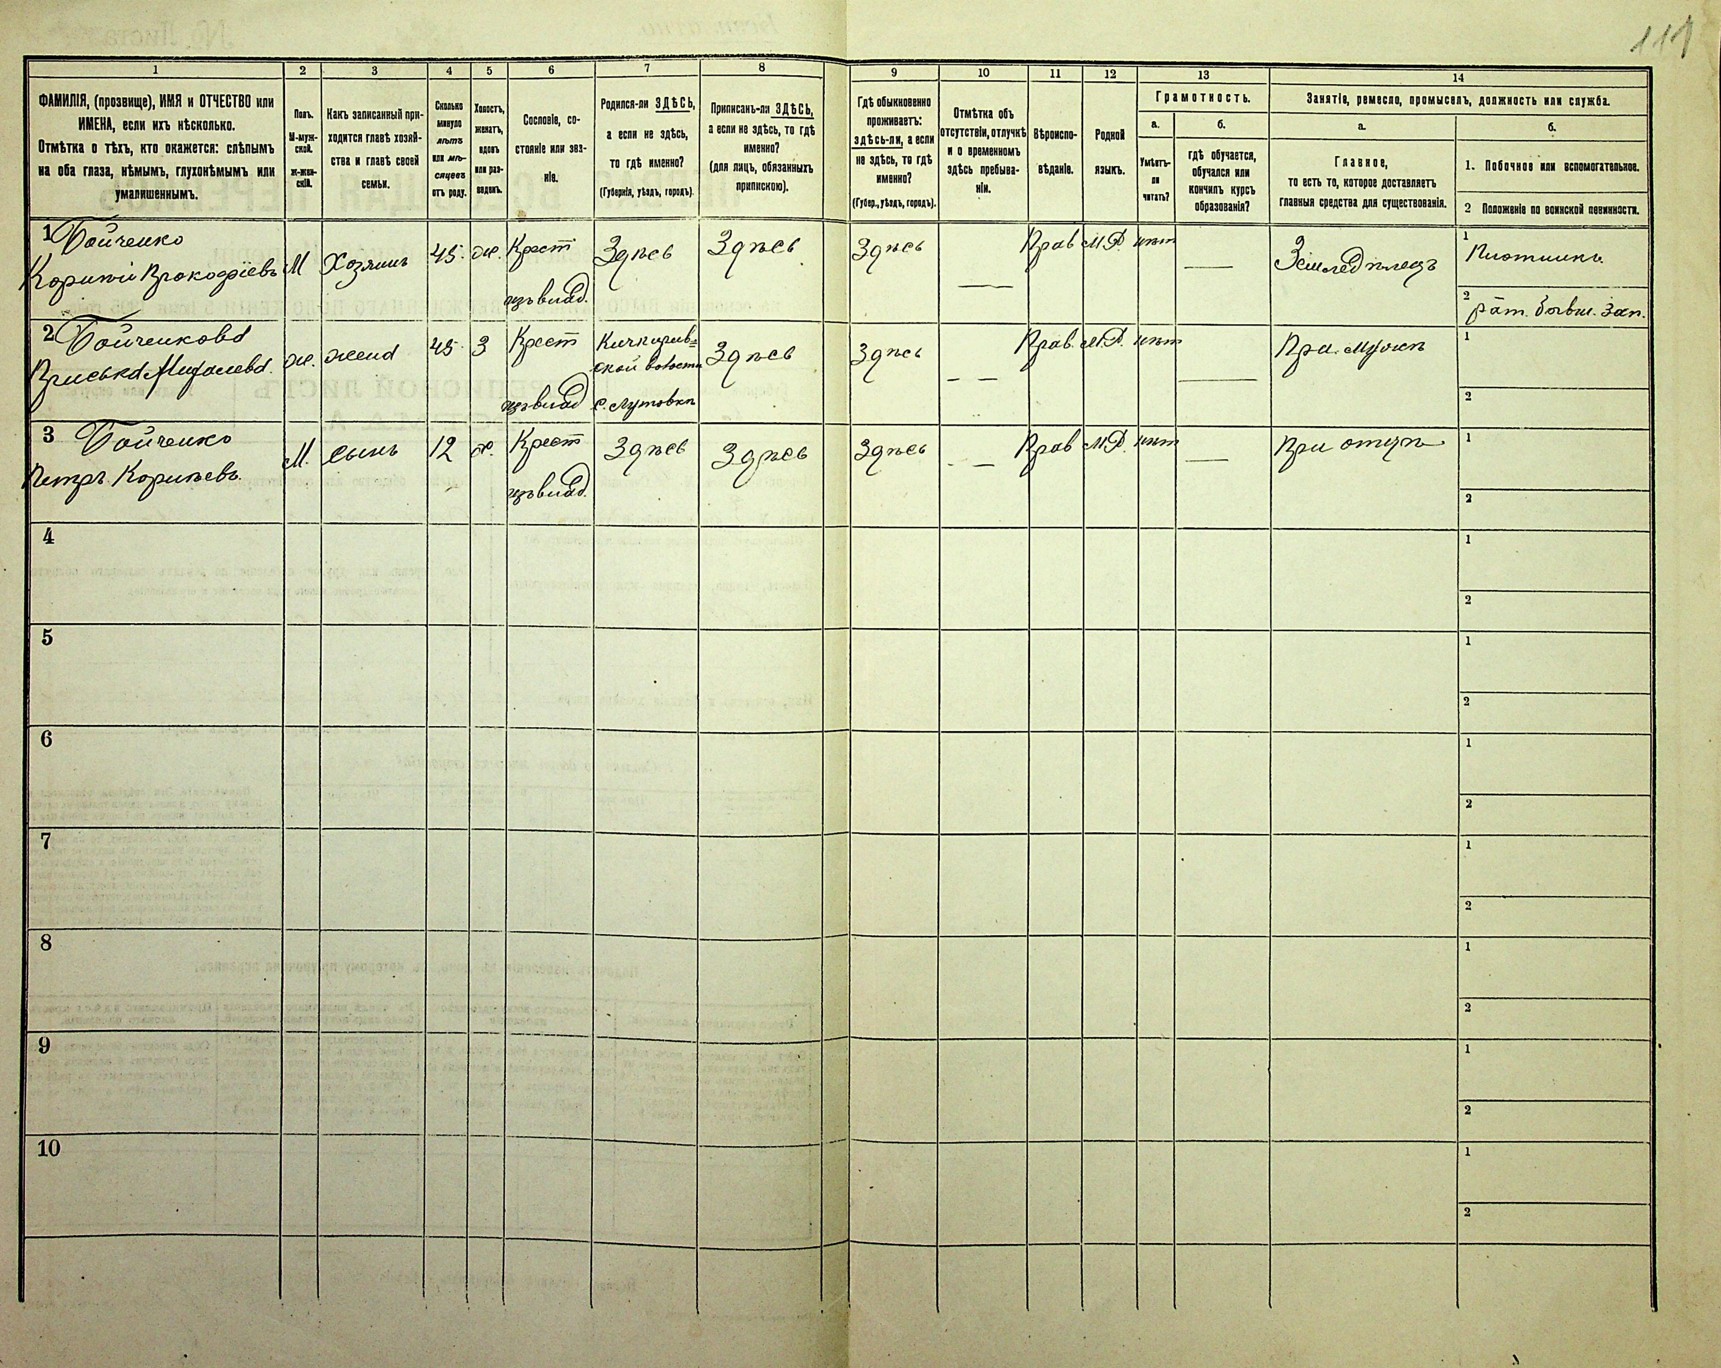 111
1 2 3 4 5 6 7 8 9 10 11 12 13 14
ФАМИЛІЯ, (прозвище), ИМЯ и ОТЧЕСТВО или
ИМЕНА, если ихъ нѣсколько.
Отмѣтка о тѣхъ, кто окажется: слѣпымъ
на оба глаза, нѣмымъ, глухонѣмымъ или
умалишеннымъ.
Полъ.
М-муж-
ской.
Ж-жен-
скій.
Какъ записанный при-
ходится главѣ хозяй-
ства и главѣ своей
семьи.
Сколько
минуло
лѣтъ
или мѣ-
сяцевъ
отъ роду.
Холостъ,
женатъ,
вдовъ
или раз-
веденъ.
Сословіе, со-
стояніе или зва-
ніе.
Родился-ли ЗДѢСЬ,
а если не здѣсь,
то гдѣ именно?
(Губернія, уѣздъ, городъ).
Приписанъ-ли ЗДѢСЬ,
а если не здѣсь, то гдѣ
именно?
(для лицъ, обязанныхъ
припискою).
Гдѣ обыкновенно
проживаетъ:
здѣсь-ли, а если
не здѣсь, то гдѣ
именно?
(Губер., уѣздъ, городъ).
Отмѣтка объ
отсутствіи, отлучкѣ
и о временномъ
здѣсь пребыва-
ніи.
Вѣроиспо-
вѣданіе.
Родной
языкъ.
Грамотность.
а.
Умѣетъ-
ли
читать?
б.
гдѣ обучается,
обучался или
кончилъ курсъ
образованія?
Занятіе, ремесло, промыселъ, должность или служба.
а.
Главное,
то есть то, которое доставляетъ
главныя средства для существованія.
б.
1. Побочное или вспомогательное.
2 Положеніе по воинской повинности.
1 Бойченко
Корнѣй Прокофіевъ М Хозяинъ 45. ж. Крест
изъ влад. Здѣсь Здѣсь Здѣсь — Прав М.Р. нѣт — Земледѣлецъ
1 Плотникъ
2 рат. бывш. зап.
2 Бойченкова
ж. жена 45 З Крест
изъ влад
волости
с. Лутовка Здѣсь Здѣсь - - Прав. М.Р. нѣт — При мужѣ
1
2
3 Бойченко
Петръ Корнѣевъ. М. сынъ 12 х. Крест
изъ влад. Здѣсь Здѣсь Здѣсь - - Прав М.Р. нѣт — При отцѣ
1
2
4
1
2
5
1
2
6
1
2
7
1
2
8
1
2
9
1
2
10
1
2